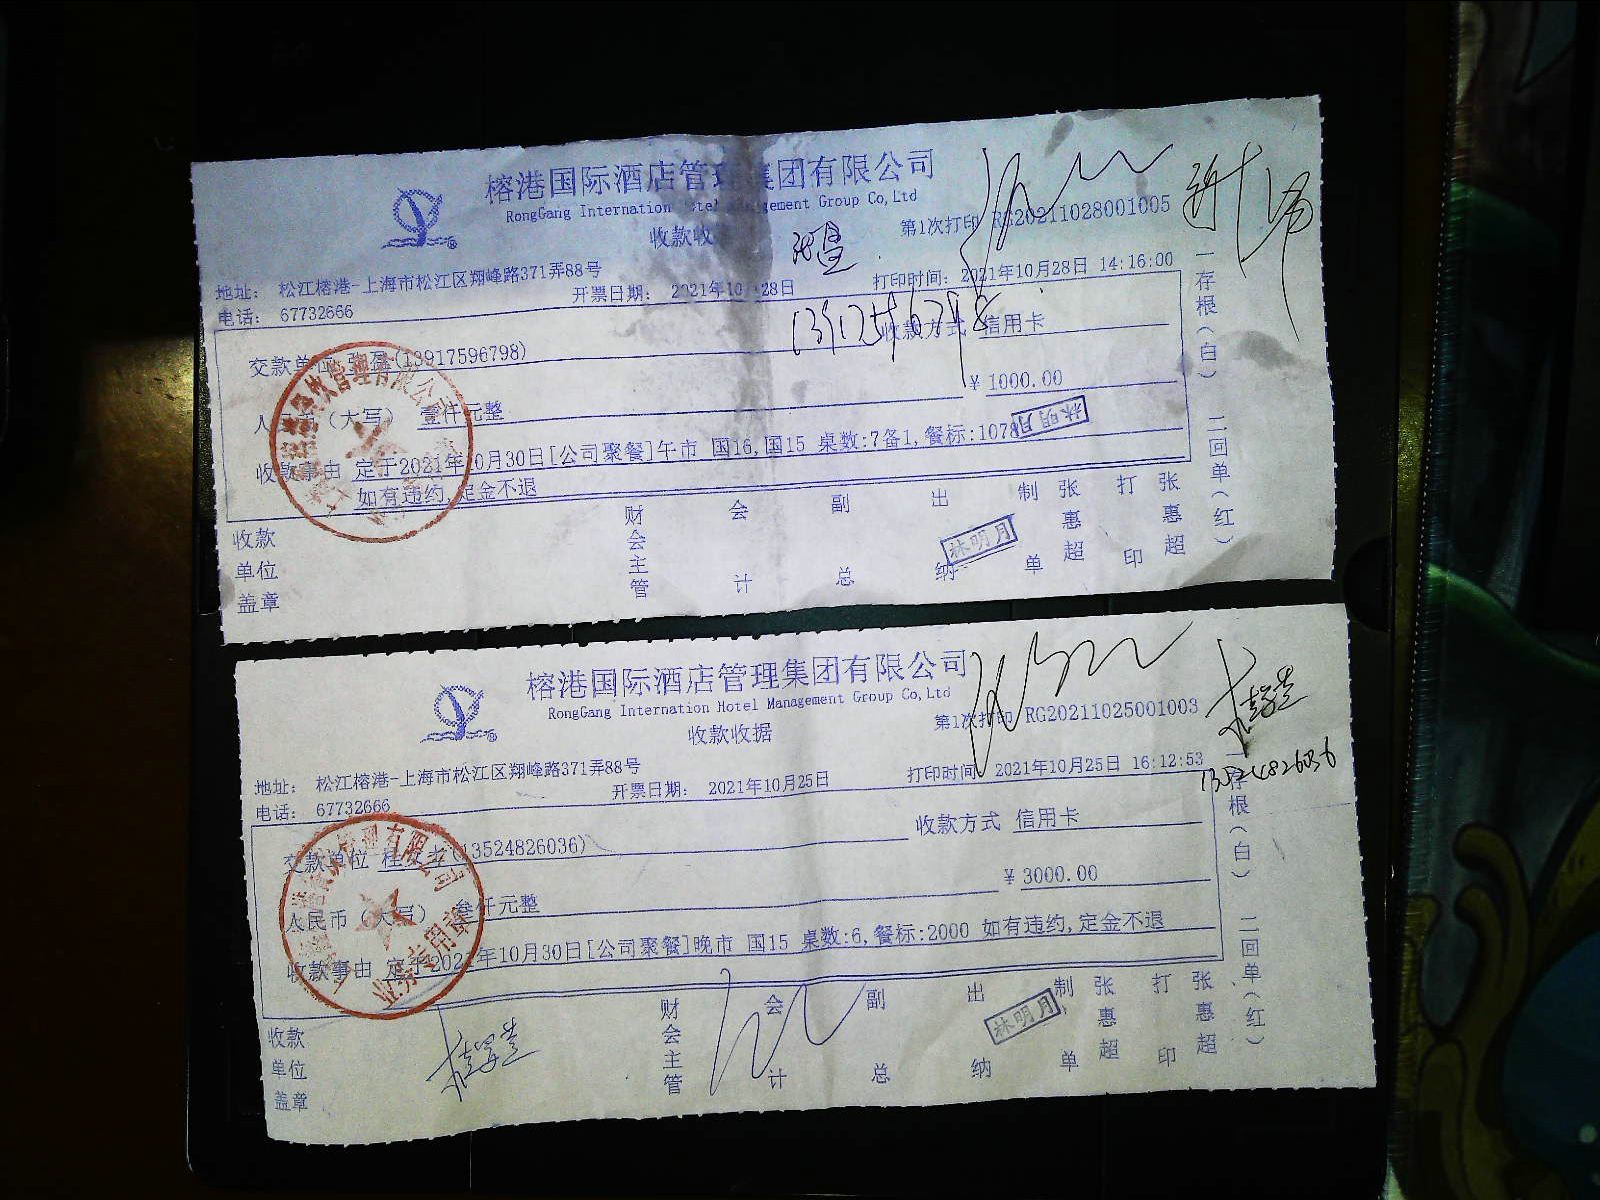 榕港国际酒店管理集团有限公司
RongGang International Hotel Management Group Co,Ltd
收款收
第1次打印 RG20211028001005
地址： 松江榕港-上海市松江区翔峰路371弄88号
开票日期： 2021年10月28日
打印时间：2021年10月28日 14:16:00
电话： 67732666
交款单位 张盈(13917596798)
收款方式 信用卡
人民币（大写） 壹仟元整
¥ 1000.00
收款事由 定于2021年10月30日[公司聚餐]午市 国16,国15 桌数:7备1,餐标:1078
林明月
如有违约,定金不退
收款单位盖章
财会主管
会计
副总
出纳
林明月
制单
张惠超
打印
张惠超
一存根(白) 二回单(红)
榕港国际酒店管理集团有限公司
RongGang International Hotel Management Group Co,Ltd
收款收据
第1次打印 RG20211025001003
地址： 松江榕港-上海市松江区翔峰路371弄88号
开票日期： 2021年10月25日
打印时间 2021年10月25日 16:12:53
13524826036
电话： 67732666
交款单位 (13524826036)
收款方式 信用卡
人民币（大写） 叁仟元整
¥ 3000.00
收款事由 定于2021年10月30日[公司聚餐]晚市 国15 桌数:6,餐标:2000 如有违约,定金不退
业务专用章
收款单位盖章
财会主管
会计
副总
出纳
林明月
制单
张惠超
打印
张惠超
存根(白) 二回单(红)